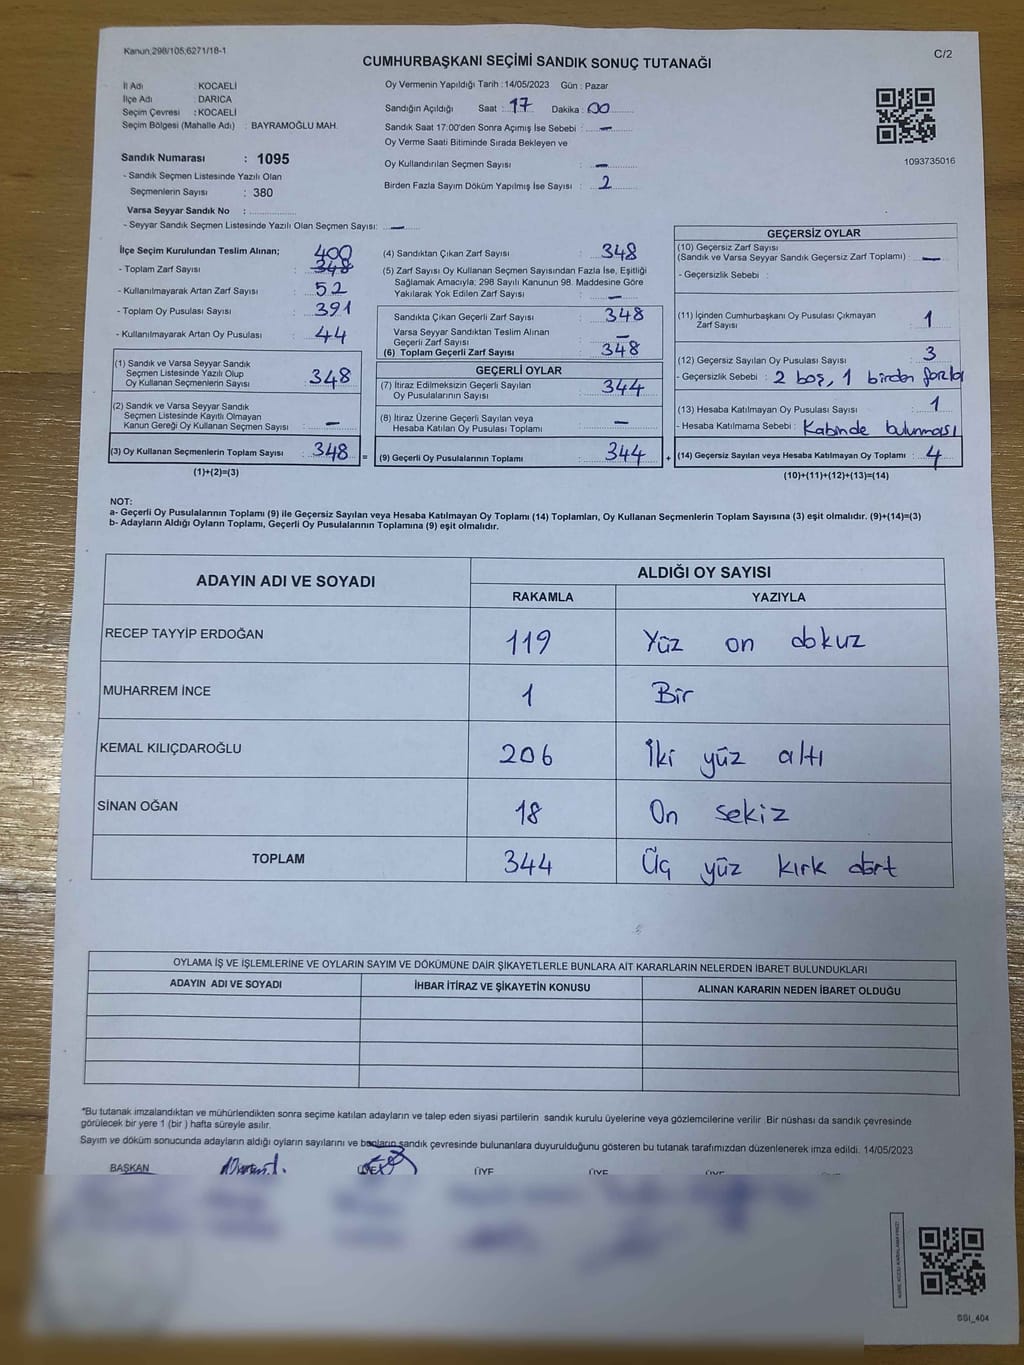 Kanun;298/105;6271/18-1
C/2
CUMHURBAŞKANI SEÇİMİ SANDIK SONUÇ TUTANAĞI
İl Adı : KOCAELİ
İlçe Adı : DARICA
Seçim Çevresi : KOCAELİ
Seçim Bölgesi (Mahalle Adı) : BAYRAMOĞLU MAH.
Sandık Numarası : 1095
- Sandık Seçmen Listesinde Yazılı Olan
Seçmenlerin Sayısı : 380
Varsa Seyyar Sandık No :
- Seyyar Sandık Seçmen Listesinde Yazılı Olan Seçmen Sayısı: —
Oy Vermenin Yapıldığı Tarih : 14/05/2023 Gün : Pazar
Sandığın Açıldığı Saat : 17 Dakika : 00
Sandık Saat 17:00'den Sonra Açımış İse Sebebi : —
Oy Verme Saati Bitiminde Sırada Bekleyen ve
Oy Kullandırılan Seçmen Sayısı : —
Birden Fazla Sayım Döküm Yapılmış İse Sayısı : 2
1093735016
İlçe Seçim Kurulundan Teslim Alınan;
400
- Toplam Zarf Sayısı : 348
- Kullanılmayarak Artan Zarf Sayısı : 52
- Toplam Oy Pusulası Sayısı : 391
- Kullanılmayarak Artan Oy Pusulası : 44
(1) Sandık ve Varsa Seyyar Sandık
Seçmen Listesinde Yazılı Olup
Oy Kullanan Seçmenlerin Sayısı : 348
(2) Sandık ve Varsa Seyyar Sandık
Seçmen Listesinde Kayıtlı Olmayan
Kanun Gereği Oy Kullanan Seçmen Sayısı : —
(3) Oy Kullanan Seçmenlerin Toplam Sayısı : 348
(1)+(2)=(3)
=
(4) Sandıktan Çıkan Zarf Sayısı : 348
(5) Zarf Sayısı Oy Kullanan Seçmen Sayısından Fazla İse, Eşitliği
Sağlamak Amacıyla; 298 Sayılı Kanunun 98. Maddesine Göre
Yakılarak Yok Edilen Zarf Sayısı : —
Sandıkta Çıkan Geçerli Zarf Sayısı : 348
Varsa Seyyar Sandıktan Teslim Alınan
Geçerli Zarf Sayısı : —
(6) Toplam Geçerli Zarf Sayısı : 348
GEÇERLİ OYLAR
(7) İtiraz Edilmeksizin Geçerli Sayılan
Oy Pusulalarının Sayısı : 344
(8) İtiraz Üzerine Geçerli Sayılan veya
Hesaba Katılan Oy Pusulası Toplamı : —
(9) Geçerli Oy Pusulalarının Toplamı : 344
+
GEÇERSİZ OYLAR
(10) Geçersiz Zarf Sayısı
(Sandık ve Varsa Seyyar Sandık Geçersiz Zarf Toplamı) : —
- Geçersizlik Sebebi :
(11) İçinden Cumhurbaşkanı Oy Pusulası Çıkmayan
Zarf Sayısı : 1
(12) Geçersiz Sayılan Oy Pusulası Sayısı : 3
- Geçersizlik Sebebi : 2 boş, 1 birden fazla
(13) Hesaba Katılmayan Oy Pusulası Sayısı : 1
- Hesaba Katılmama Sebebi : Kabinde bulunması
(14) Geçersiz Sayılan veya Hesaba Katılmayan Oy Toplamı : 4
(10)+(11)+(12)+(13)=(14)
NOT:
a- Geçerli Oy Pusulalarının Toplamı (9) ile Geçersiz Sayılan veya Hesaba Katılmayan Oy Toplamı (14) Toplamları, Oy Kullanan Seçmenlerin Toplam Sayısına (3) eşit olmalıdır. (9)+(14)=(3)
b- Adayların Aldığı Oyların Toplamı, Geçerli Oy Pusulalarının Toplamına (9) eşit olmalıdır.
ADAYIN ADI VE SOYADI
ALDIĞI OY SAYISI
RAKAMLA YAZIYLA
RECEP TAYYİP ERDOĞAN 119 Yüz on dokuz
MUHARREM İNCE 1 Bir
KEMAL KILIÇDAROĞLU 206 İki yüz altı
SİNAN OĞAN 18 On sekiz
TOPLAM 344 Üç yüz kırk dört
OYLAMA İŞ VE İŞLEMLERİNE VE OYLARIN SAYIM VE DÖKÜMÜNE DAİR ŞİKAYETLERLE BUNLARA AİT KARARLARIN NELERDEN İBARET BULUNDUKLARI
ADAYIN ADI VE SOYADI İHBAR İTİRAZ VE ŞİKAYETİN KONUSU ALINAN KARARIN NEDEN İBARET OLDUĞU
*Bu tutanak imzalandıktan ve mühürlendikten sonra seçime katılan adayların ve talep eden siyasi partilerin sandık kurulu üyelerine veya gözlemcilerine verilir. Bir nüshası da sandık çevresinde
görülecek bir yere 1 (bir ) hafta süreyle asılır.
Sayım ve döküm sonucunda adayların aldığı oyların sayılarını ve bunların sandık çevresinde bulunanlara duyurulduğunu gösteren bu tutanak tarafımızdan düzenlenerek imza edildi. 14/05/2023
BAŞKAN ÜYE ÜYE ÜYE ÜYE
SSI_404